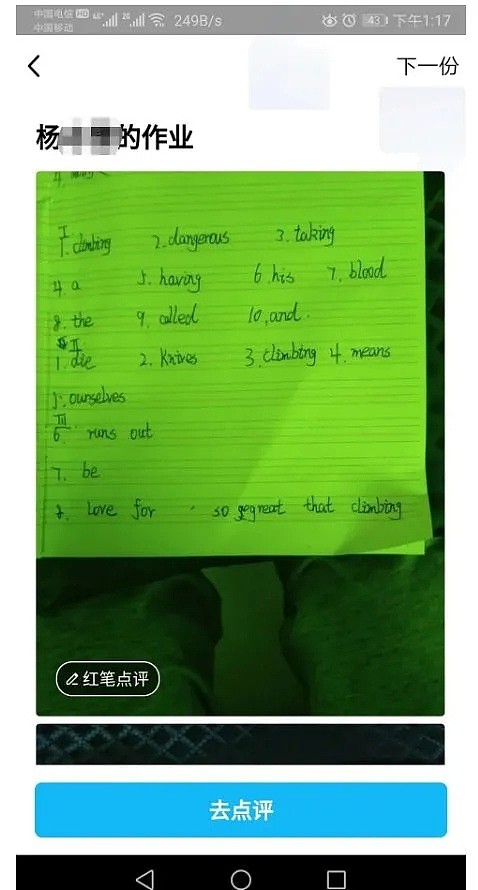 中国电信 HD 4G 2G 249B/s 43 下午1:17
中国移动
下一份
杨 的作业
4.
I
1. climbing 2. dangerous 3. taking
4. a 5. having 6. his 7. blood
8. the 9. called 10. and.
II
1. die 2. Knives 3. climbing 4. means
5. ourselves
III
6 runs out
7. be
8. Love for so great that climbing
红笔点评
去点评